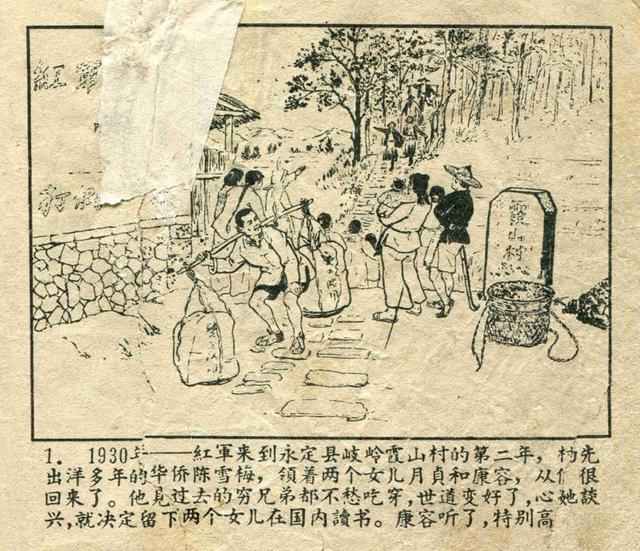 紅軍
打
霞山村
1. 1930年——紅軍来到永定县岐岭霞山村的第二年，村先
出洋多年的华侨陈雪梅，领着两个女儿月貞和康容，从们很
回来了。他見过去的穷兄弟都不愁吃穿，世道变好了，心她談
兴，就决定留下两个女儿在国内讀书。康容听了，特别高